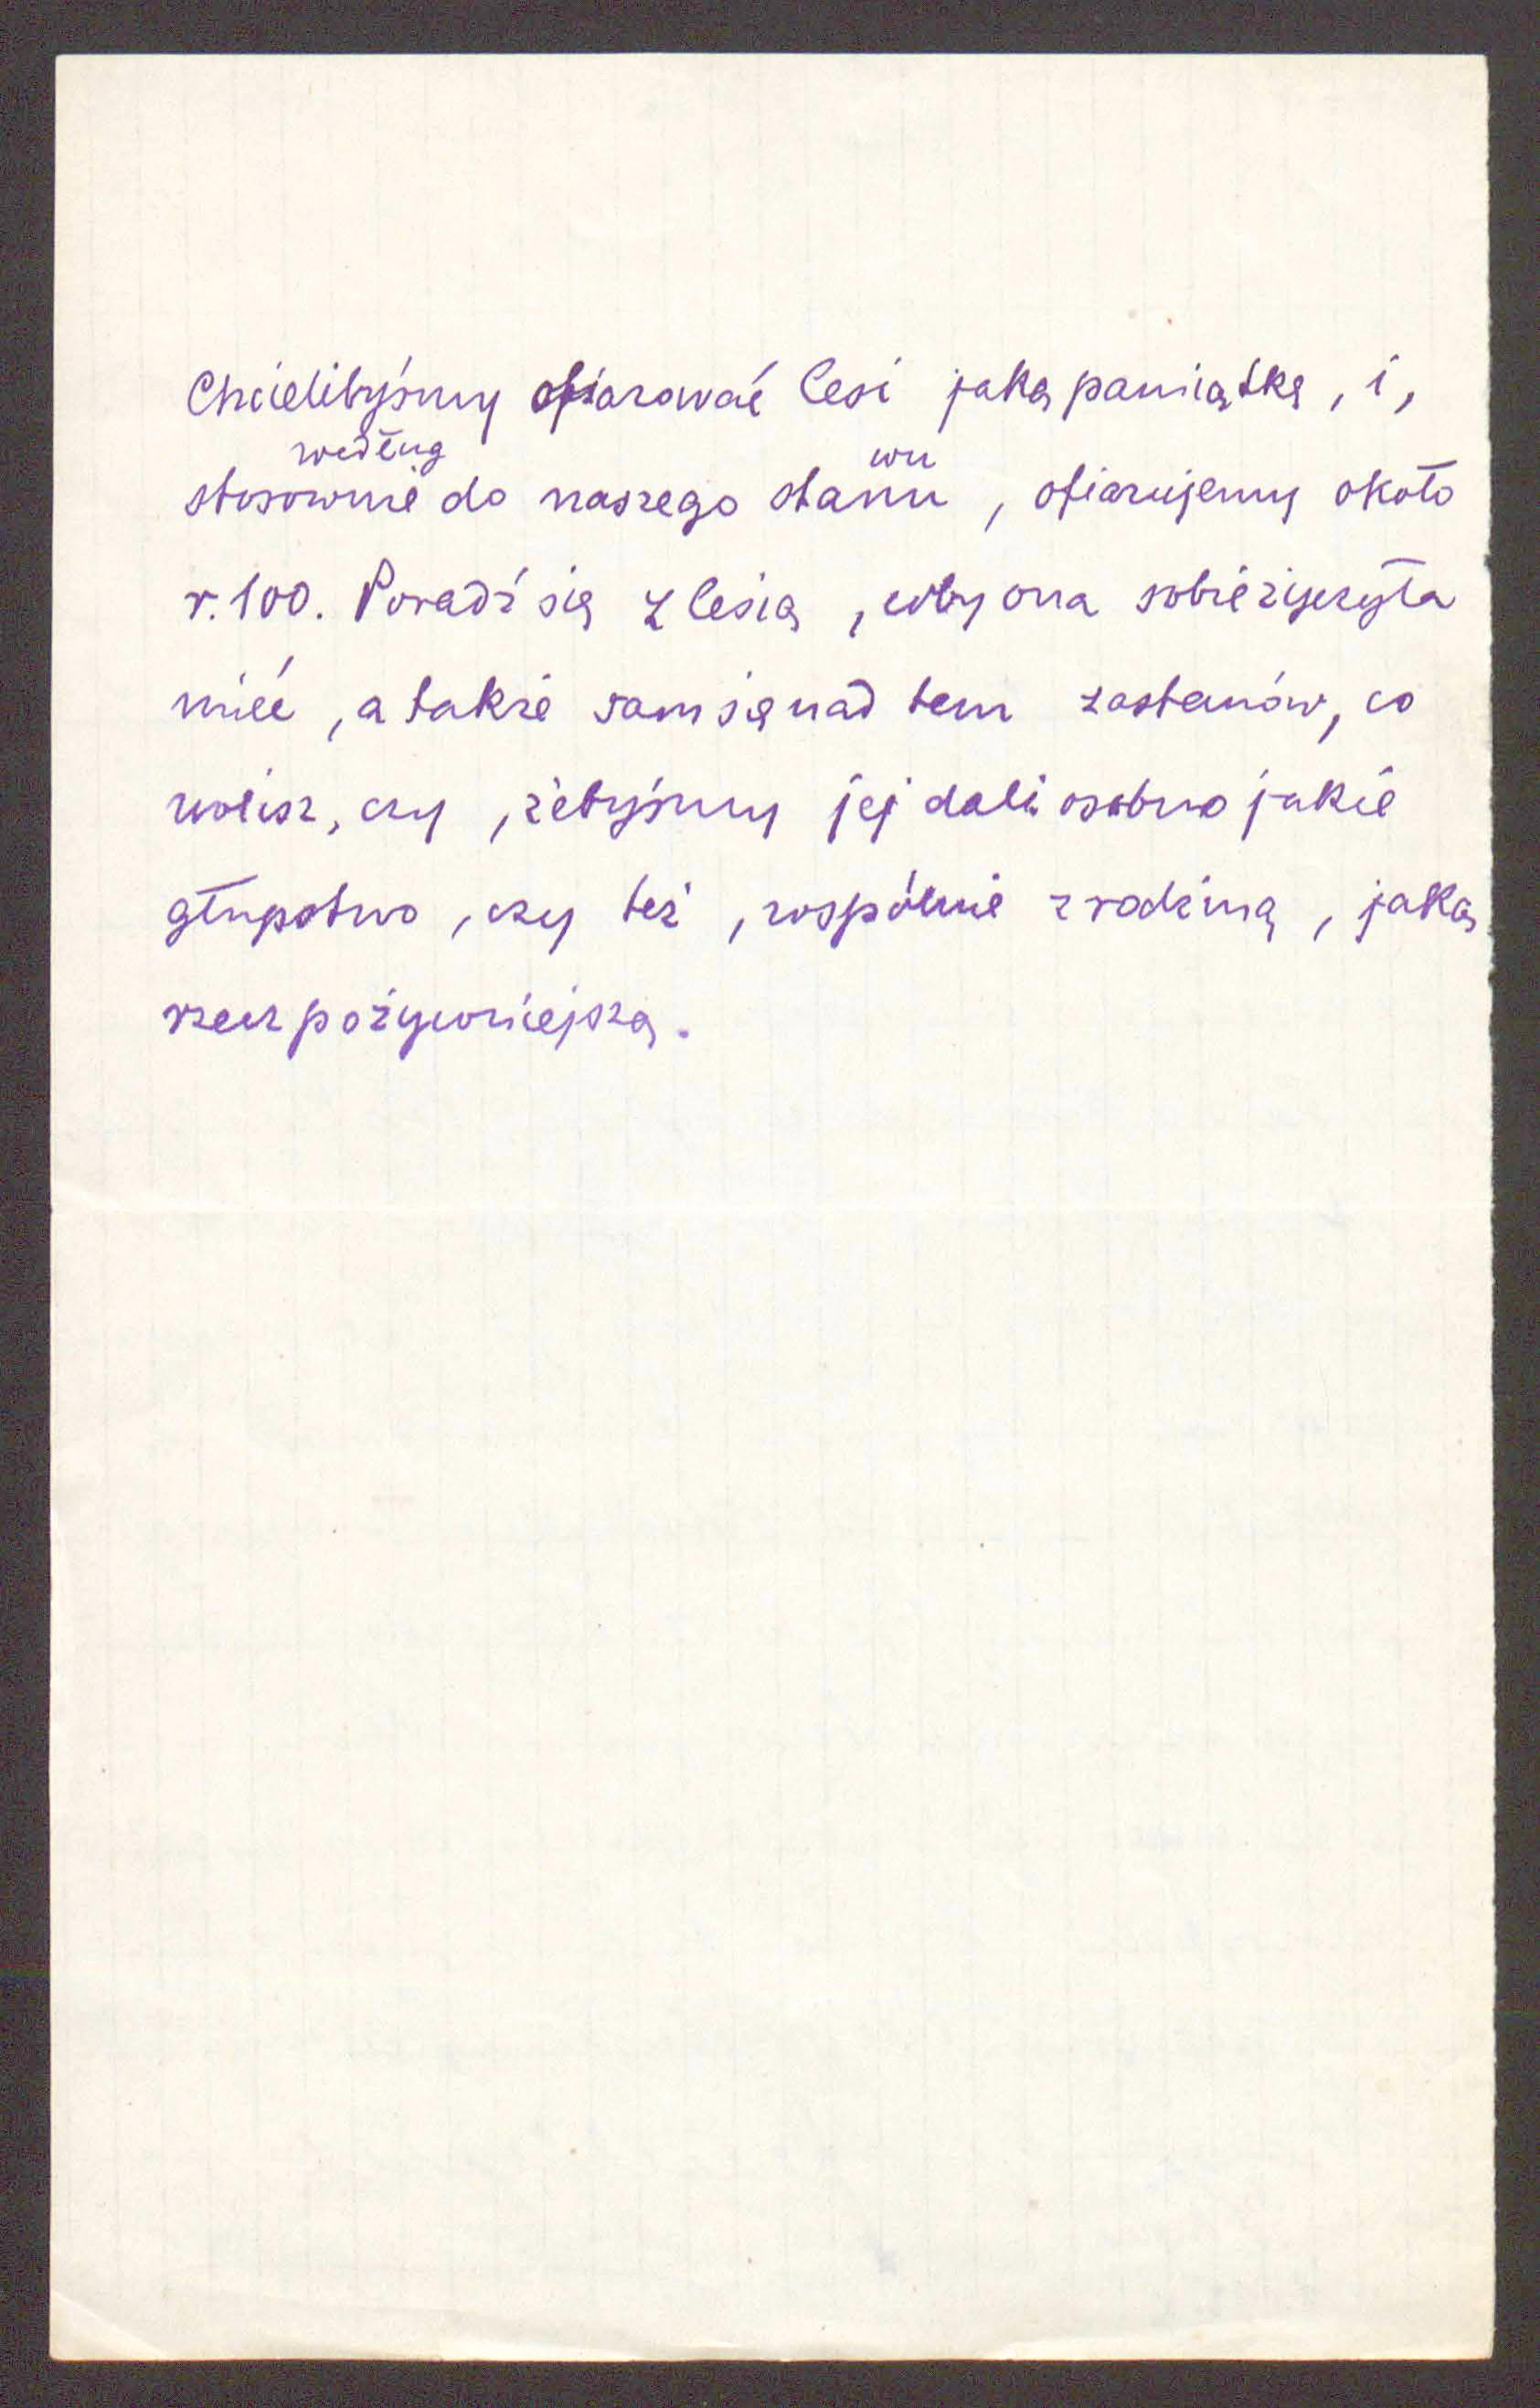 Chcielibyśmy ofiarować Cesi jaką pamiątkę, i,
według wu
stosownie do naszego stanu, ofiarujemy około
r. 100. Poradź się z Cesią, coby ona sobie życzyła
mieć, a także sam się nad tem zastanów, co
wolisz, czy, żebyśmy jej dali osobno jakie
głupstwo, czy też, wspólnie z rodziną, jaką
rzecz pożywniejszą.